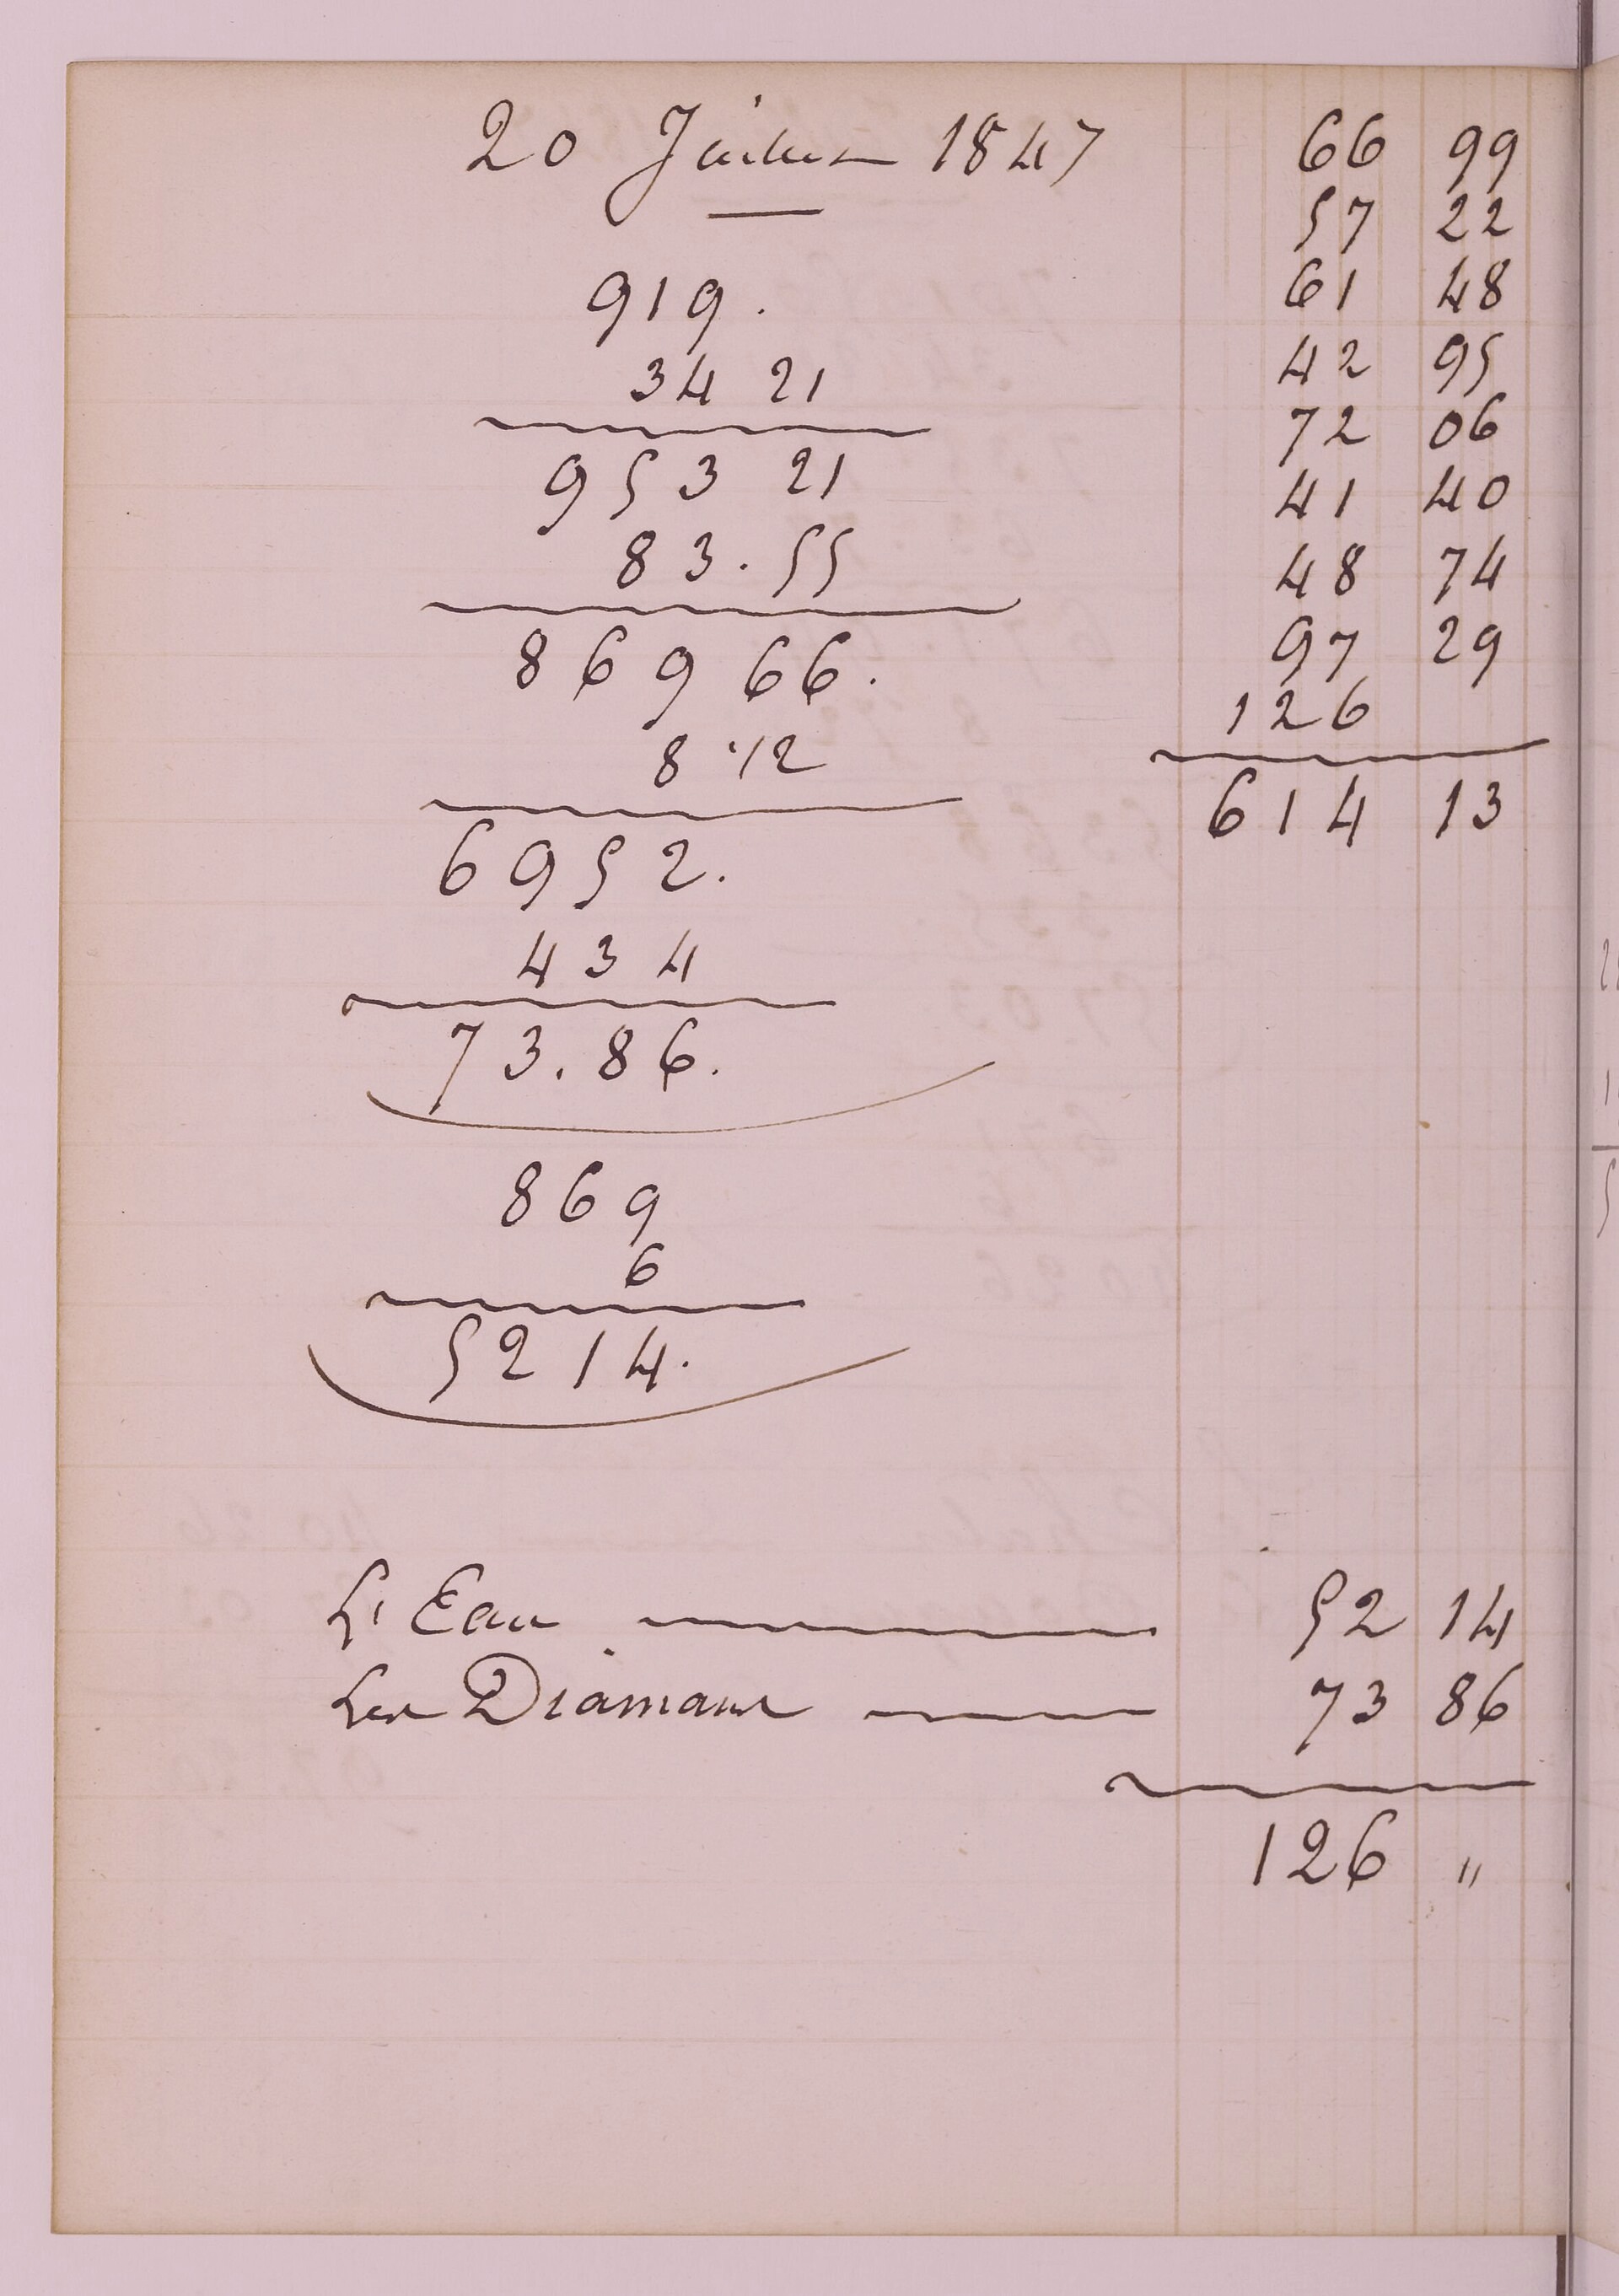 20 Janvier 1847
919.
34 21
953 21
83.55
869 66.
8 1/2
6952.
434
73.86.
869
6
5214.
66 99
57 22
61 48
42 95
72 06
41 40
48 74
97 29
126
614 13
L'Eau — 52 14
Les Diamans — 73 86
126 "